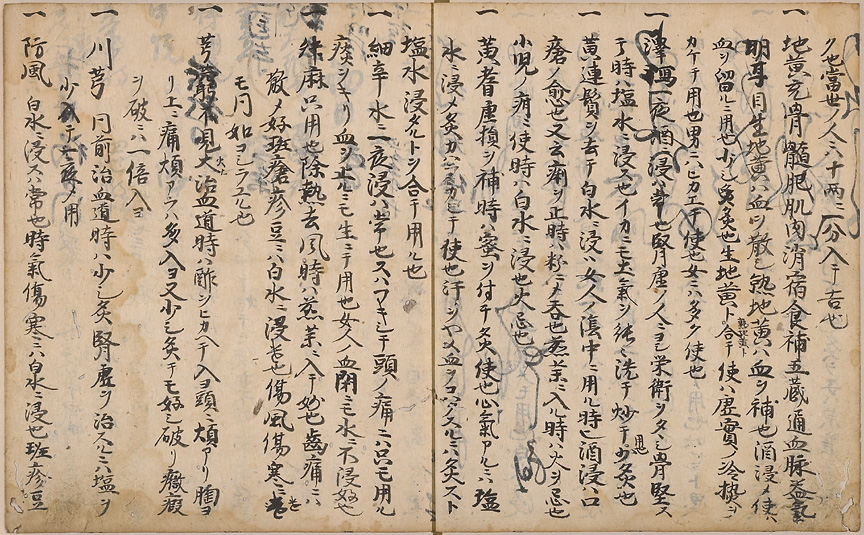 ク也當世ノ人ミハ十兩ニ一分入テ吉也
一 地黄充骨髓肥肌肉消宿食補五蔵通血脉益氣
明耳目生地黄ハ血ヲ散シ熟地黄ハ血ヲ補也酒浸メ使ハ
血ヲ留ルニ用也少シ炙也生地黄ト合テ使ハ虚實ノ冷熱ニ
カケテ用也男ニハヒカエテ使也女ニハ多ク使也
一 澤瀉一夜酒浸ハ常也腎虚ノ人ニヨシ栄衛ヲタシ骨堅ス
ル時ハ塩水ニ浸ス也イカニモ土氣ヲ能々洗テ炒テ少炙也
一 黄連鬚ヲ去テ白水ニ浸ハ女人ノ陰中ニ用ル時也酒浸ハ口
瘡ノ愈也又云痢ヲ止時ハ粉ニメ呑也煎薬ニ入ル時ハ火ヲ忌也
小児ノ疳ニ使時ハ白水ニ浸也火忌也
一 黄耆虚損ヲ補時ハ蜜ヲ付テ炙使也心氣アルハ塩
水ニ浸メ炙 使也汗ヲヤメ血ヲ ニハ炙スト
塩水浸タルトヲ合テ用ル也
一 細辛水ニ一夜浸ハ常也又ハ 頭ノ痛ニハ只モ用ル
痰ヲキリ血ヲ上ルニモ生ニテ用也女人血閉ニモ水ニ不浸好也
一 升麻只用也除熱去風時ハ煎薬ニ入テ妙也齒痛ニハ
散メ好斑瘡疹豆ニハ白水ニ浸吉也傷風傷寒
モ同如
一 芎 大治血道時ハ酢ヲヒカヘテ入ヨ頭ニ煩アリ胸ヨ
リ上ニ痛煩アラハ多入ヨ又少シ炙テモ好シ破リ癥瘕
ヲ破ニハ一倍入ヨ
一 川芎 同前治血道時ハ少シ炙腎虚ヲ治スルニハ塩ヲ
少入テ一夜メ用
一 防風 白水ニ浸スハ常也時氣傷寒ニハ白水ニ浸也斑疹豆